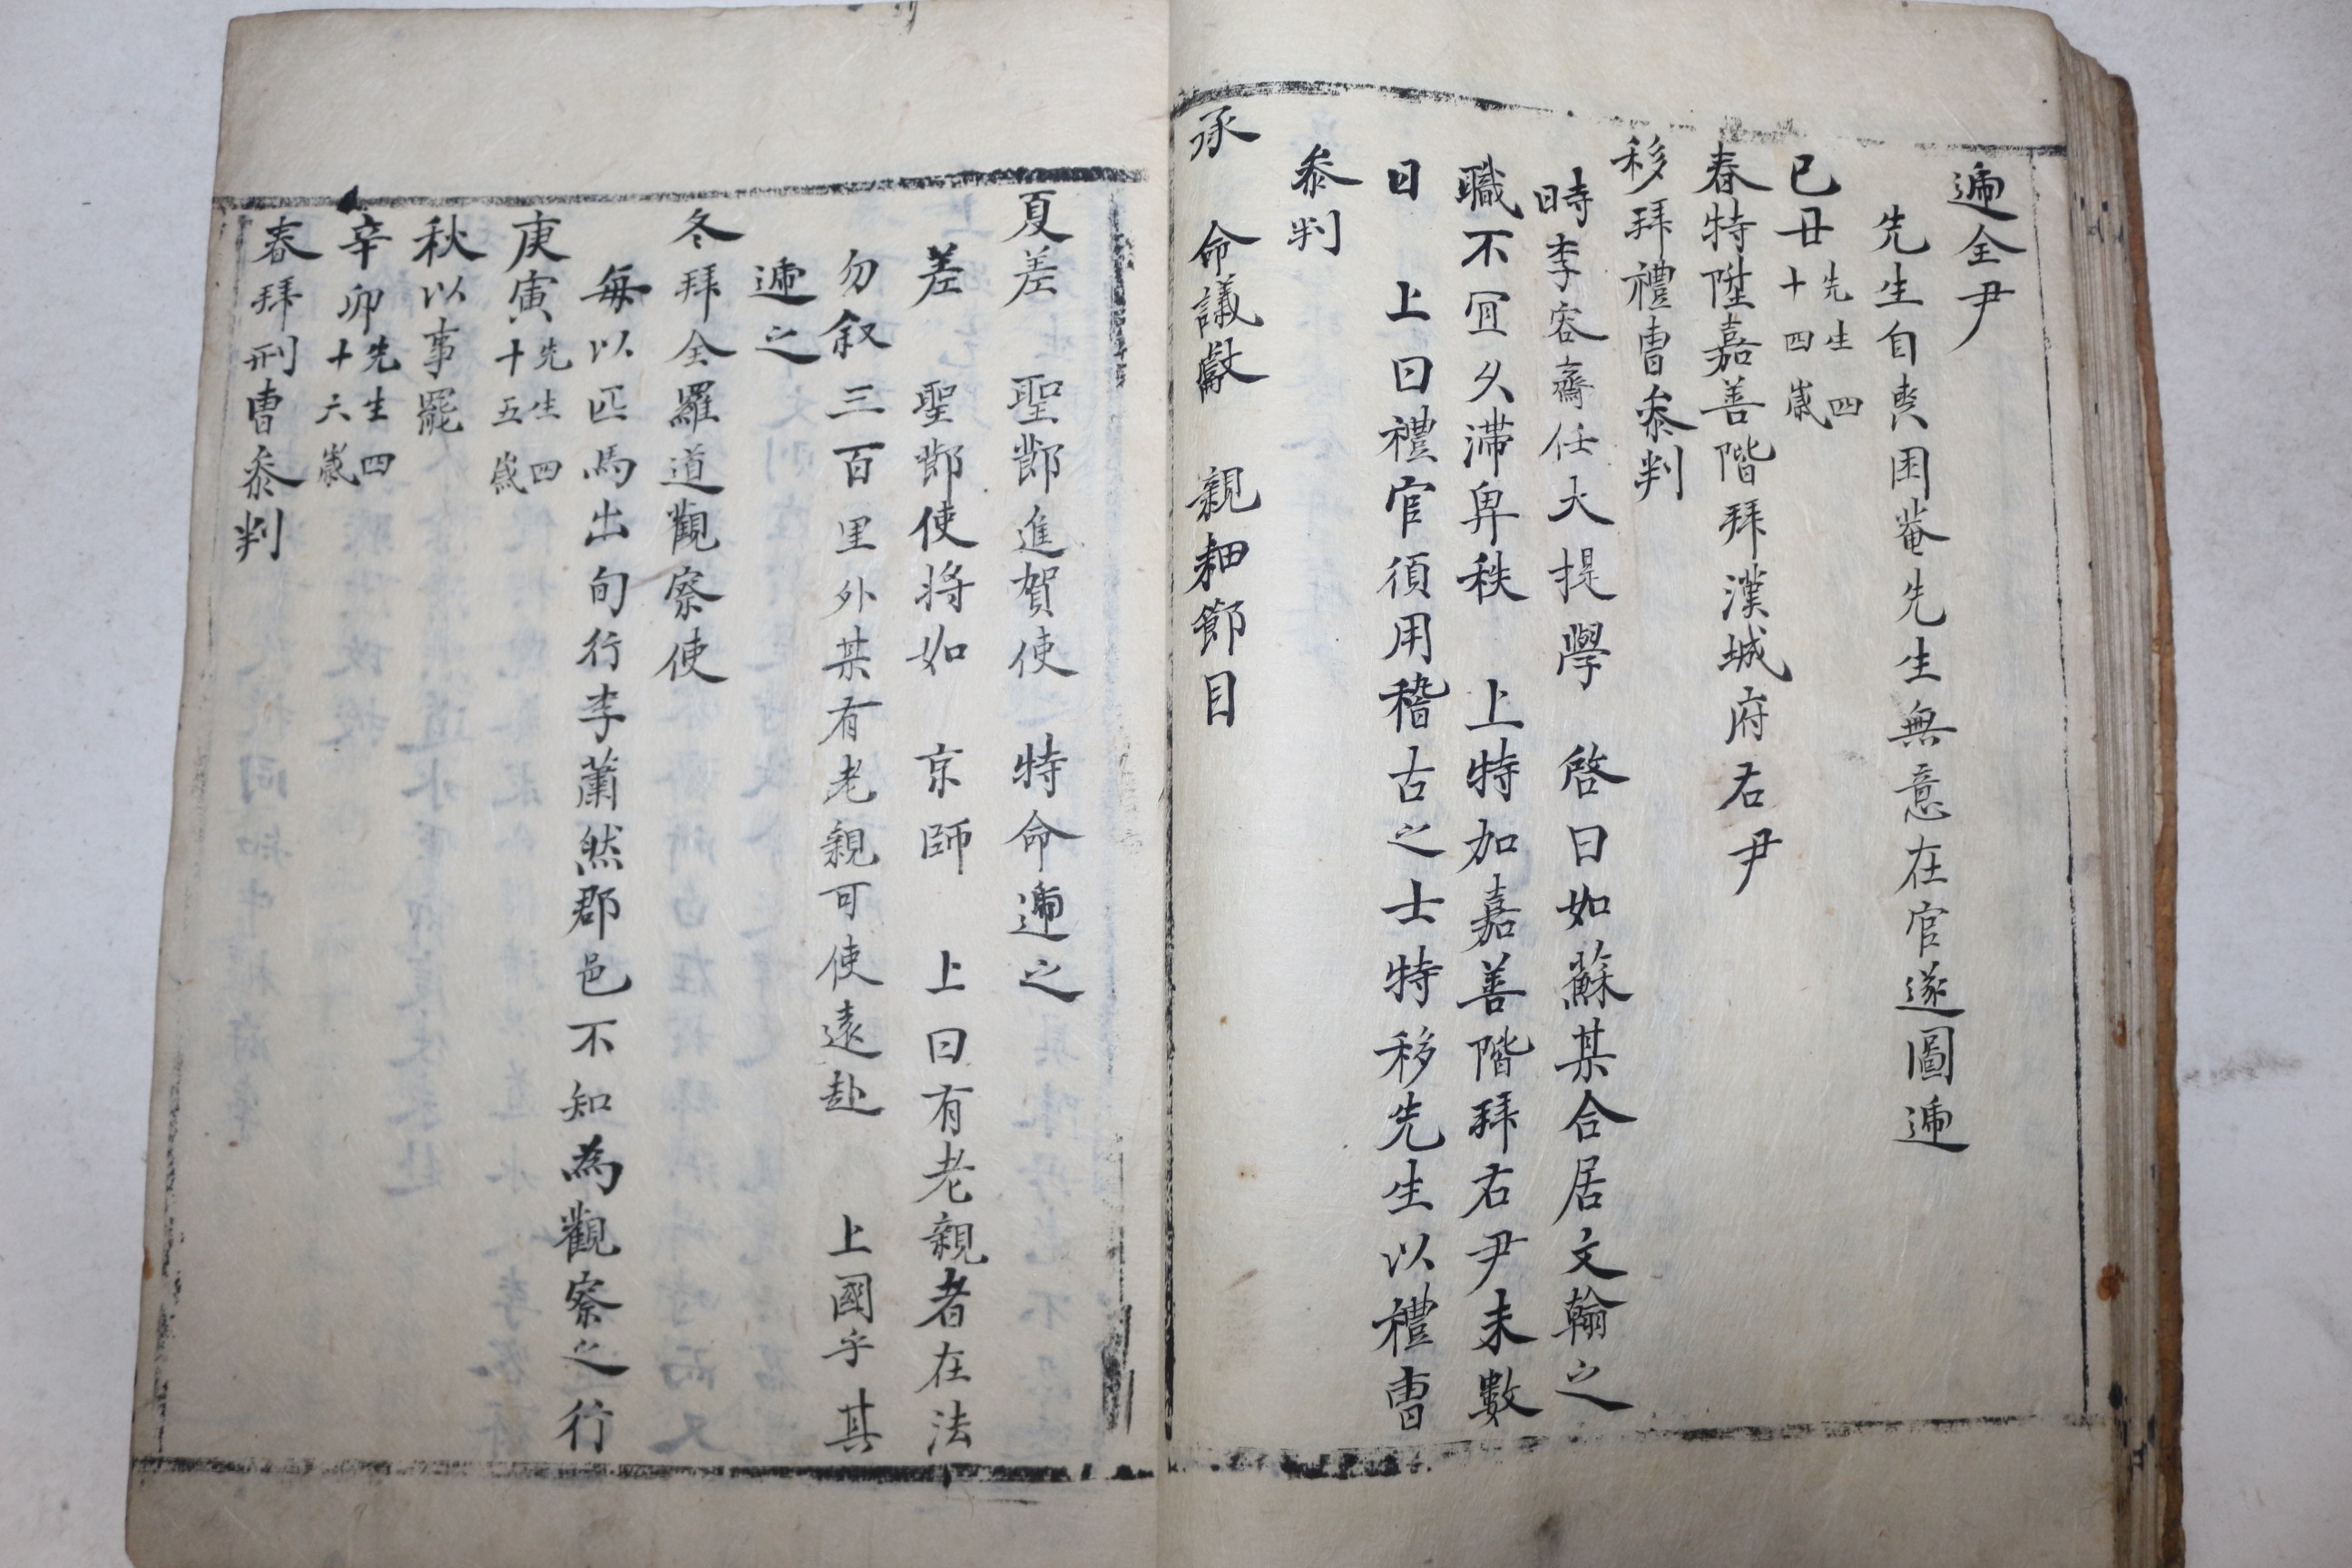 遞全尹
先生自喪困菴先生無意在官遂圖遞
己丑先生四十四歲
春特陞嘉善階拜漢城府右尹
移拜禮曹叅判
時李容齋任大提學 啓曰如蘇某合居文翰之
職不冝久滯卑秩 上特加嘉善階拜右尹未數
日 上曰禮官須用稽古之士特移先生以禮曹
叅判
承 命議獻 親耕節目
夏差 聖節進賀使 特命遞之
差 聖節使將如 京師 上曰有老親者在法
勿叙三百里外某有老親可使遠赴 上國乎其
遞之
冬拜全羅道觀察使
每以匹馬出旬行李蕭然郡邑不知為觀察之行
庚寅先生四十五歲
秋以事罷
辛卯先生四十六歲
春拜刑曹叅判